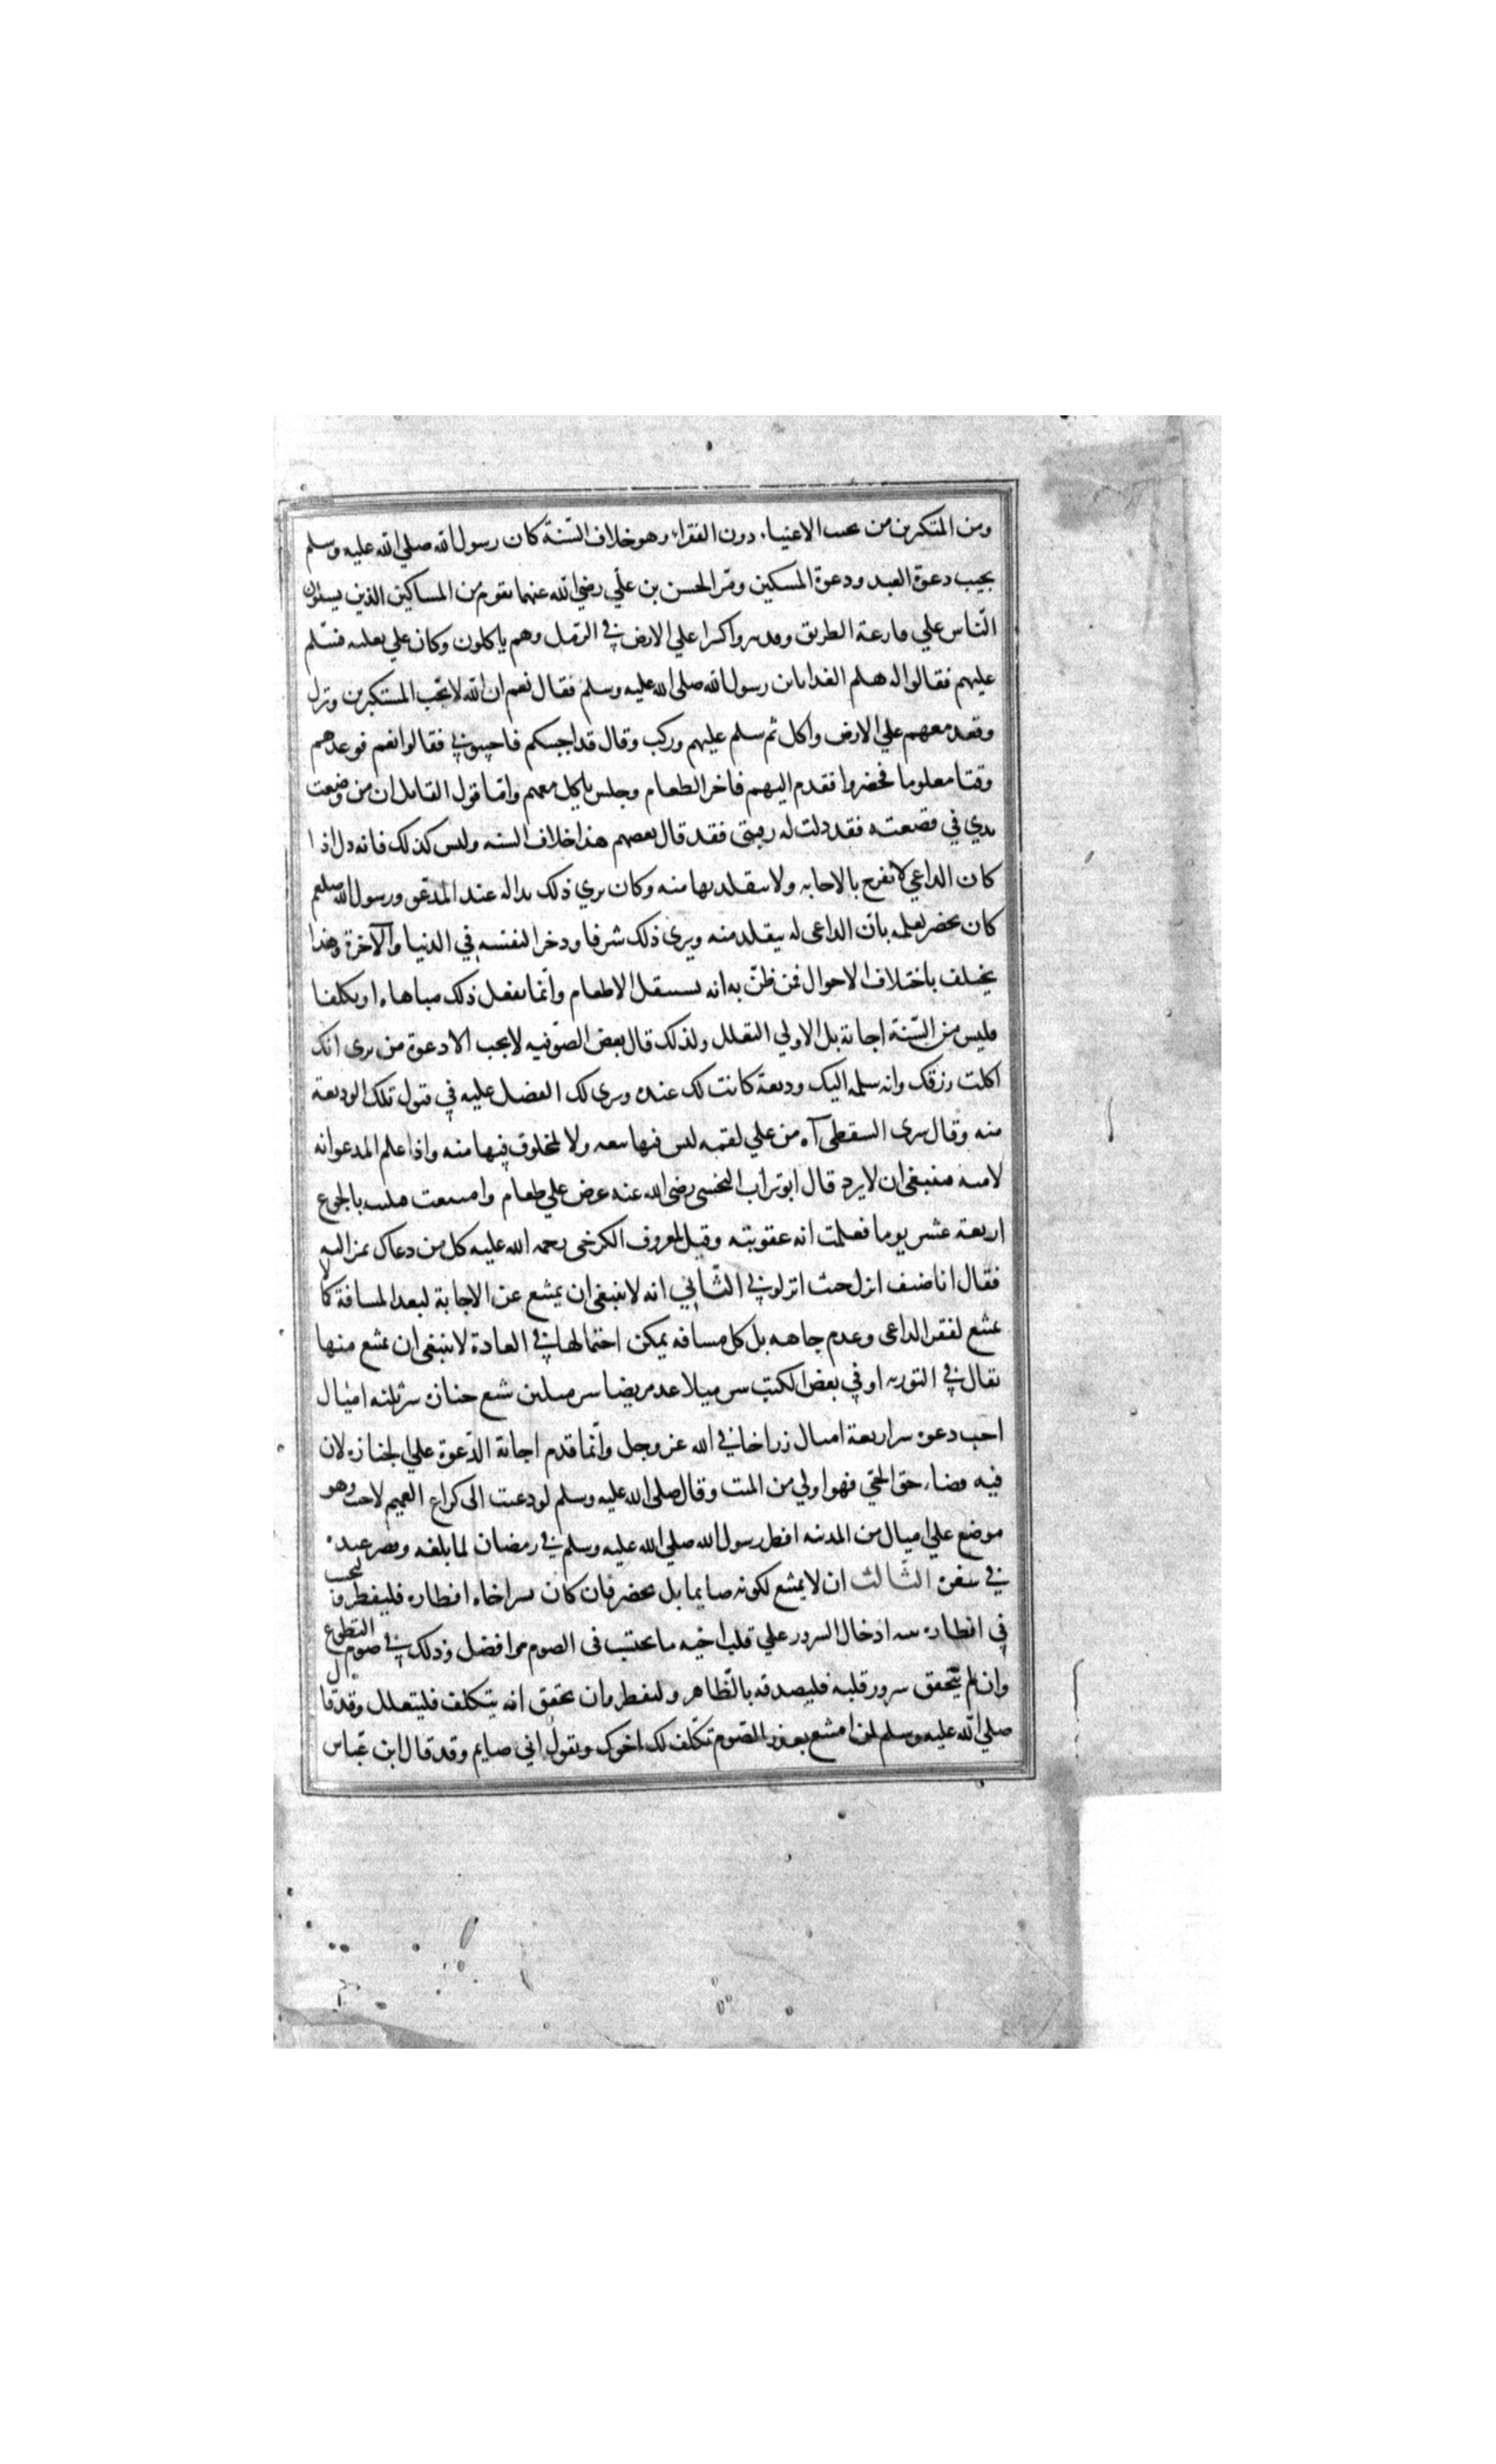 ومن المتكبرين من يجيب الاغنياء دون الفقراء وهو خلاف السّنة كان رسول الله صلي الله عليه وسلم
يجيب دعوة العبد ودعوة المسكين ومرّ الحسن بن علّي رضي الله عنهما بقوم من المساكين الذين يسئلون
النّاس علي قارعة الطريق وقد نشروا كسرا علي الارض في الرّمل وهم ياكلون وكان علي بغلته فسّلم
عليهم فقالوا له هلم الغدا يابن رسول الله صلى الله عليه وسلم فقال نعم ان الله لا يحّب المستكبرين ونزل
وقعد معهم علي الارض واكل ثم سلم عليهم وركب وقال قد اجبتكم فاجيبوني فقالوا نعم فوعدهم
وقتا معلوما فحضروا فقدم اليهم فاخر الطعام وجلس ياكل معهم وامّا قول القايل ان من وضعت
يدي في قصعته فقد ذلت له رقبتى فقد قال بعضهم هذا خلاف السنه وليس كذلك فانه ذل اذا
كان الداعي لا يفرح بالاجابه ولا يتقلد بها منه وكان يري ذلك يدا له عند المدعّو ورسول الله صلعم
كان يحضر لعلمه بانّ الداعى له يتقلد منه ويرى ذلك شرفا وذخرا لنفسه في الدنيا والآخرة وهذا
يختلف باختلاف الاحوال فمن ظنّ به انه يستثقل الاطعام وانّما يفعل ذلك مباهاه او تكلفا
فليس من السّنة اجابته بل الاولي التعلل ولذلك قال بعض الصّوفيه لا يجب الا دعوة من يرى انك
اكلت رزقك وانه سلمه اليك وديعة كانت لك عنده ويرى لك الفضل عليه في قبول تلك الوديعة
منه وقال سرى السقطى آه من علي لقمه ليس فيها تبعه ولا لمخلوق فيها منه واذا علم المدعو انه
لا منه فينبغى ان لا يرد قال ابو تراب النخشبى رضى الله عنه عرض علي طعام وامتنعت فبليت بالجوع
اربعة عشر يوما فعلمت انه عقوبته وقيل لمعروف الكرخى رحمه الله عليه كل من دعاك تمر اليه
فقال انا ضيف انزل حيث انزلوني الثّاني انه لا ينبغى ان يمتنع عن الاجابة لبعد المسافة كما لا
يمتنع لفقر الداعى وعدم جاهه بل كل مسافه يمكن احتمالها في العادة لا ينبغى ان يمتنع منها
يقال في التوريه او في بعض الكتب سر ميلا عد مريضا سر ميلين شيع جنازه سر ثلثه اميال
اجب دعوه سر اربعة اميال زر اخا في الله عز وجل وانّما قدم اجابة الدّعوة علي الجنازه لان
فيه قضاء حق الحّي فهو اولي من الميت وقال صلى الله عليه وسلم لو دعيت الى كراع الغميم لاجبت وهو
موضع علي اميال من المدينه افطر رسول الله صلي الله عليه وسلم في رمضان لما بلغه وقصر عنده
في سفره الثّالث ان لا يمتنع لكونه صايما بل يحضر فان كان يسر اخاه افطاره فليفطر وليحتسب
في افطاره بنيه ادخال السرور علي قلب اخيه ما يحتسب فى الصوم وافضل وذلك في صوم التطوع
وان لم يتحقق سرور قلبه فليصدقه بالظّاهر وليفطر وان تحقق انه يتكلف فليتعلل وقد قال
صلي الله عليه وسلم لمن امتنع بعذر الصّوم تكّلف لك اخوك وتقول اني صايم وقد قال ابن عّباس